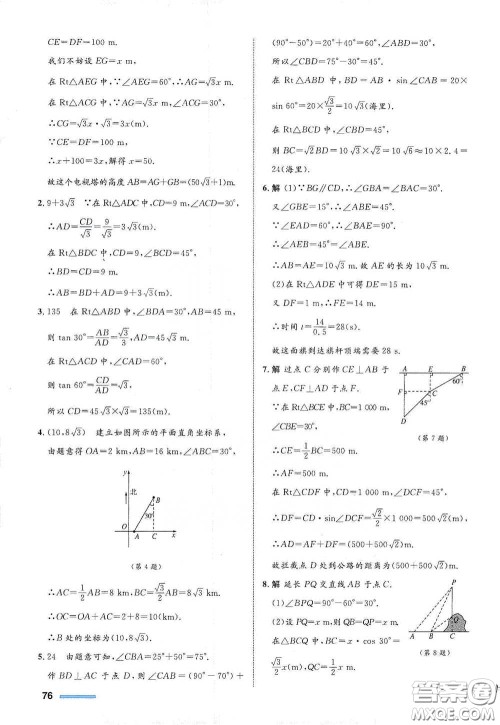 CE=DF=100 m.
我们不妨设 EG=x m.
在 Rt△AEG 中,∵∠AEG=60°,∴AG=√3x m.
在 Rt△ACG 中,∵AG=√3x m,∠ACG=30°,
∴CG=√3x·√3=3x(m).
∵CE=100 m,CG=3x m,
∴x+100=3x,解得 x=50.
故这个电视塔的高度 AB=AG+GB=(50√3+1)m.
2. 9+3√3 ∵在 Rt△ADC 中,CD=9 m,∠ADC=30°,
∴AD=CD/√3=9/√3=3√3(m).
在 Rt△BDC 中,∵∠BDC=45°,
∴BD=CD=9 m.
∴AB=BD+AD=9+3√3(m).
3. 135 在 Rt△ABD 中,∠BDA=30°,AB=45 m,
则 tan 30°=AB/AD=√3/3,∴AD=45√3 m.
在 Rt△ACD 中,∠CAD=60°,
则 tan 60°=CD/AD=√3,
所以 CD=45√3×√3=135(m).
4. (10,8√3) 建立如图所示的平面直角坐标系,
由题意得 OA=2 km,AB=16 km,∠ABC=30°.
y
北
B
30°
O A C x
(第 4 题)
∴AC=1/2 AB=8 km,BC=√3/2 AB=8√3 km.
∴OC=OA+AC=2+8=10(km).
∴B 处的坐标为(10,8√3).
5. 24 由题意可知,∠CBA=25°+50°=75°.
作 BD⊥AC 于点 D,则∠CAB=
76
(90°-50°)=20°+40°=60°,∠ABD=30°.
∴∠CBD=75°-30°=45°.
在 Rt△ABD 中,BD=AB·sin∠CAB=20×
sin 60°=20×√3/2=10√3(海里).
在 Rt△BCD 中,∠CBD=45°,
则 BC=√2BD=10√3×√2=10√6≈10×2.4=
24(海里).
6. 解 (1)∵BG∥CD,∴∠GBA=∠BAC=30°.
又∠GBE=15°,∴∠ABE=45°.
∵∠EAD=60°,∴∠BAE=90°.
∴∠AEB=45°.
∴AB=AE=10√3 m.故 AE 的长为 10√3 m.
(2)在 Rt△ADE 中可得 DE=15 m.
又 DF=1 m,∴EF=14 m.
∴时间 t=14/0.5=28(s).
故这面旗到达旗杆顶端需要 28 s.
7. 解 过点 C 分别作 CE⊥AB 于
点 E,CF⊥AD 于点 F.
∵在 Rt△BCE 中,BC=1 000 m,
∠CBE=30°,
∴CE=1/2 BC=500 m.
∴AF=500 m.
A E B
60°
F C
45°
D
(第 7 题)
又∵在 Rt△DCF 中,CD=1 000 m,∠DCF=45°,
∴DF=CD·sin∠DCF=√2/2×1 000=500√2(m).
∴AD=AF+DF=(500+500√2)m.
故拦截点 D 处到公路的距离为(500+500√2)m.
8. 解 延长 PQ 交直线 AB 于点 C.
(1)∠BPQ=90°-60°=30°.
(2)设 PQ=x m,由题意得
∠QBP=∠BPQ,∴QB=QP=x m.
在△BCQ 中,BC=x·cos 30°=
√3/2 x(m),QC=1/2 x m.
P
Q
A B C
(第 8 题)